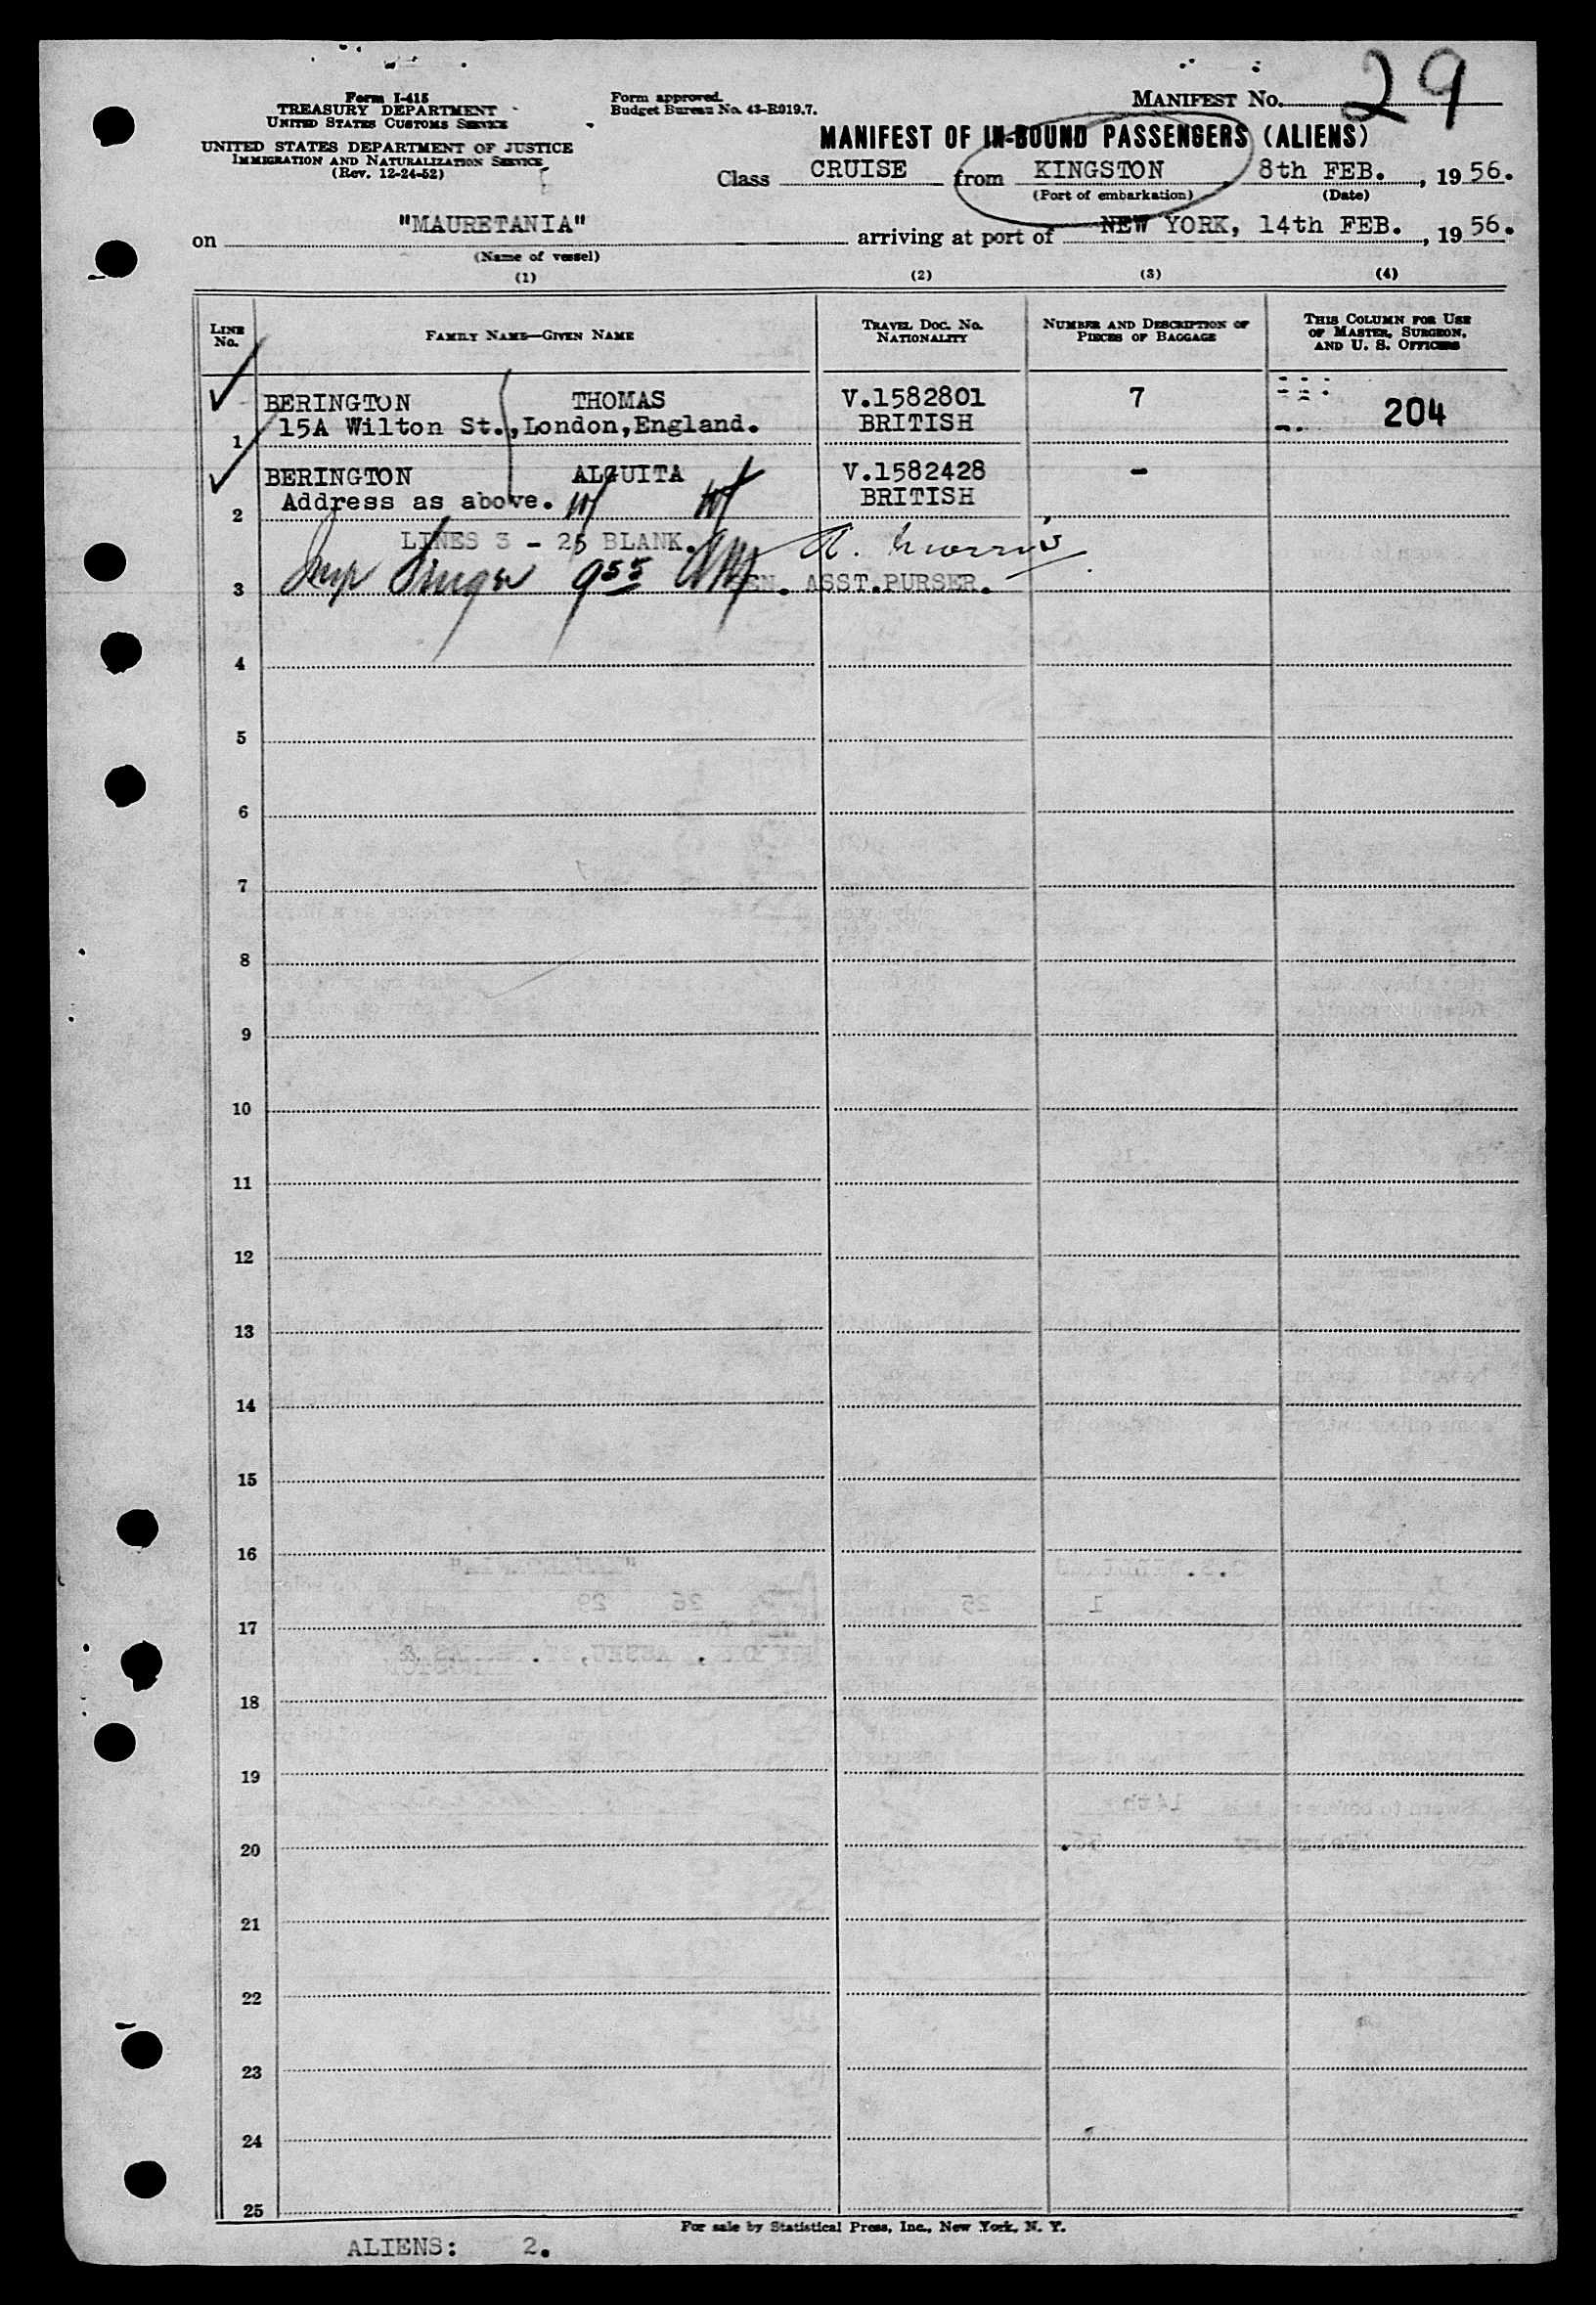 Form I-415
TREASURY DEPARTMENT
UNITED STATES CUSTOMS SERVICE
UNITED STATES DEPARTMENT OF JUSTICE
IMMIGRATION AND NATURALIZATION SERVICE
(Rev. 12-24-52)
Form approved.
Budget Bureau No. 43-R019.7.
MANIFEST No. 29
MANIFEST OF IN-BOUND PASSENGERS (ALIENS)
Class CRUISE from KINGSTON, 8th FEB., 1956.
(Port of embarkation) (Date)
on "MAURETANIA" arriving at port of NEW YORK, 14th FEB., 1956.
(Name of vessel)
(1) (2) (3) (4)
LINE No. FAMILY NAME—GIVEN NAME TRAVEL DOC. No. NATIONALITY NUMBER AND DESCRIPTION OF PIECES OF BAGGAGE THIS COLUMN FOR USE OF MASTER, SURGEON, AND U. S. OFFICERS
BERINGTON THOMAS V.1582801 7 204
1 15A Wilton St., London, England. BRITISH
BERINGTON ALGUITA V.1582428 -
2 Address as above. BRITISH
LINES 3 - 25 BLANK.
3 955 SEN. ASST. PURSER.
4
5
6
7
8
9
10
11
12
13
14
15
16
17
18
19
20
21
22
23
24
25
For sale by Statistical Press, Inc., New York, N. Y.
ALIENS: 2.